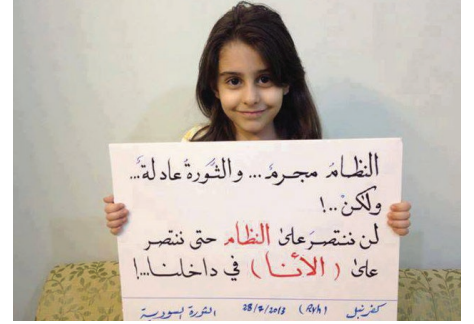 النظامُ مجرمٌ... والثورةُ عادلةٌ...
ولكنْ..!
لن ننتصرَ على النظام حتى ننتصر
على (الأنا) في داخلنا...!
كفرنبل (Ryh) 28/7/2013 الثورة السورية